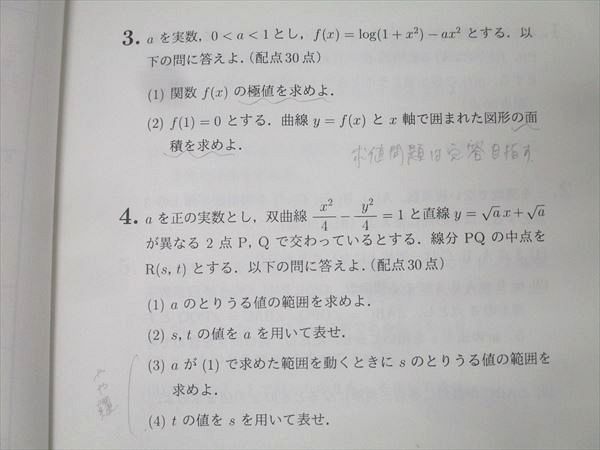 3. a を実数, 0 < a < 1 とし, f(x) = log(1 + x²) − ax² とする. 以
下の問に答えよ. (配点 30 点)
(1) 関数 f(x) の極値を求めよ.
(2) f(1) = 0 とする. 曲線 y = f(x) と x 軸で囲まれた図形の面
積を求めよ.
求値問題は完答目指す
4. a を正の実数とし, 双曲線 x²/4 − y²/4 = 1 と直線 y = √a x + √a
が異なる 2 点 P, Q で交わっているとする. 線分 PQ の中点を
R(s, t) とする. 以下の問に答えよ. (配点 30 点)
(1) a のとりうる値の範囲を求めよ.
(2) s, t の値を a を用いて表せ.
(3) a が (1) で求めた範囲を動くときに s のとりうる値の範囲を
求めよ.
(4) t の値を s を用いて表せ.
やや